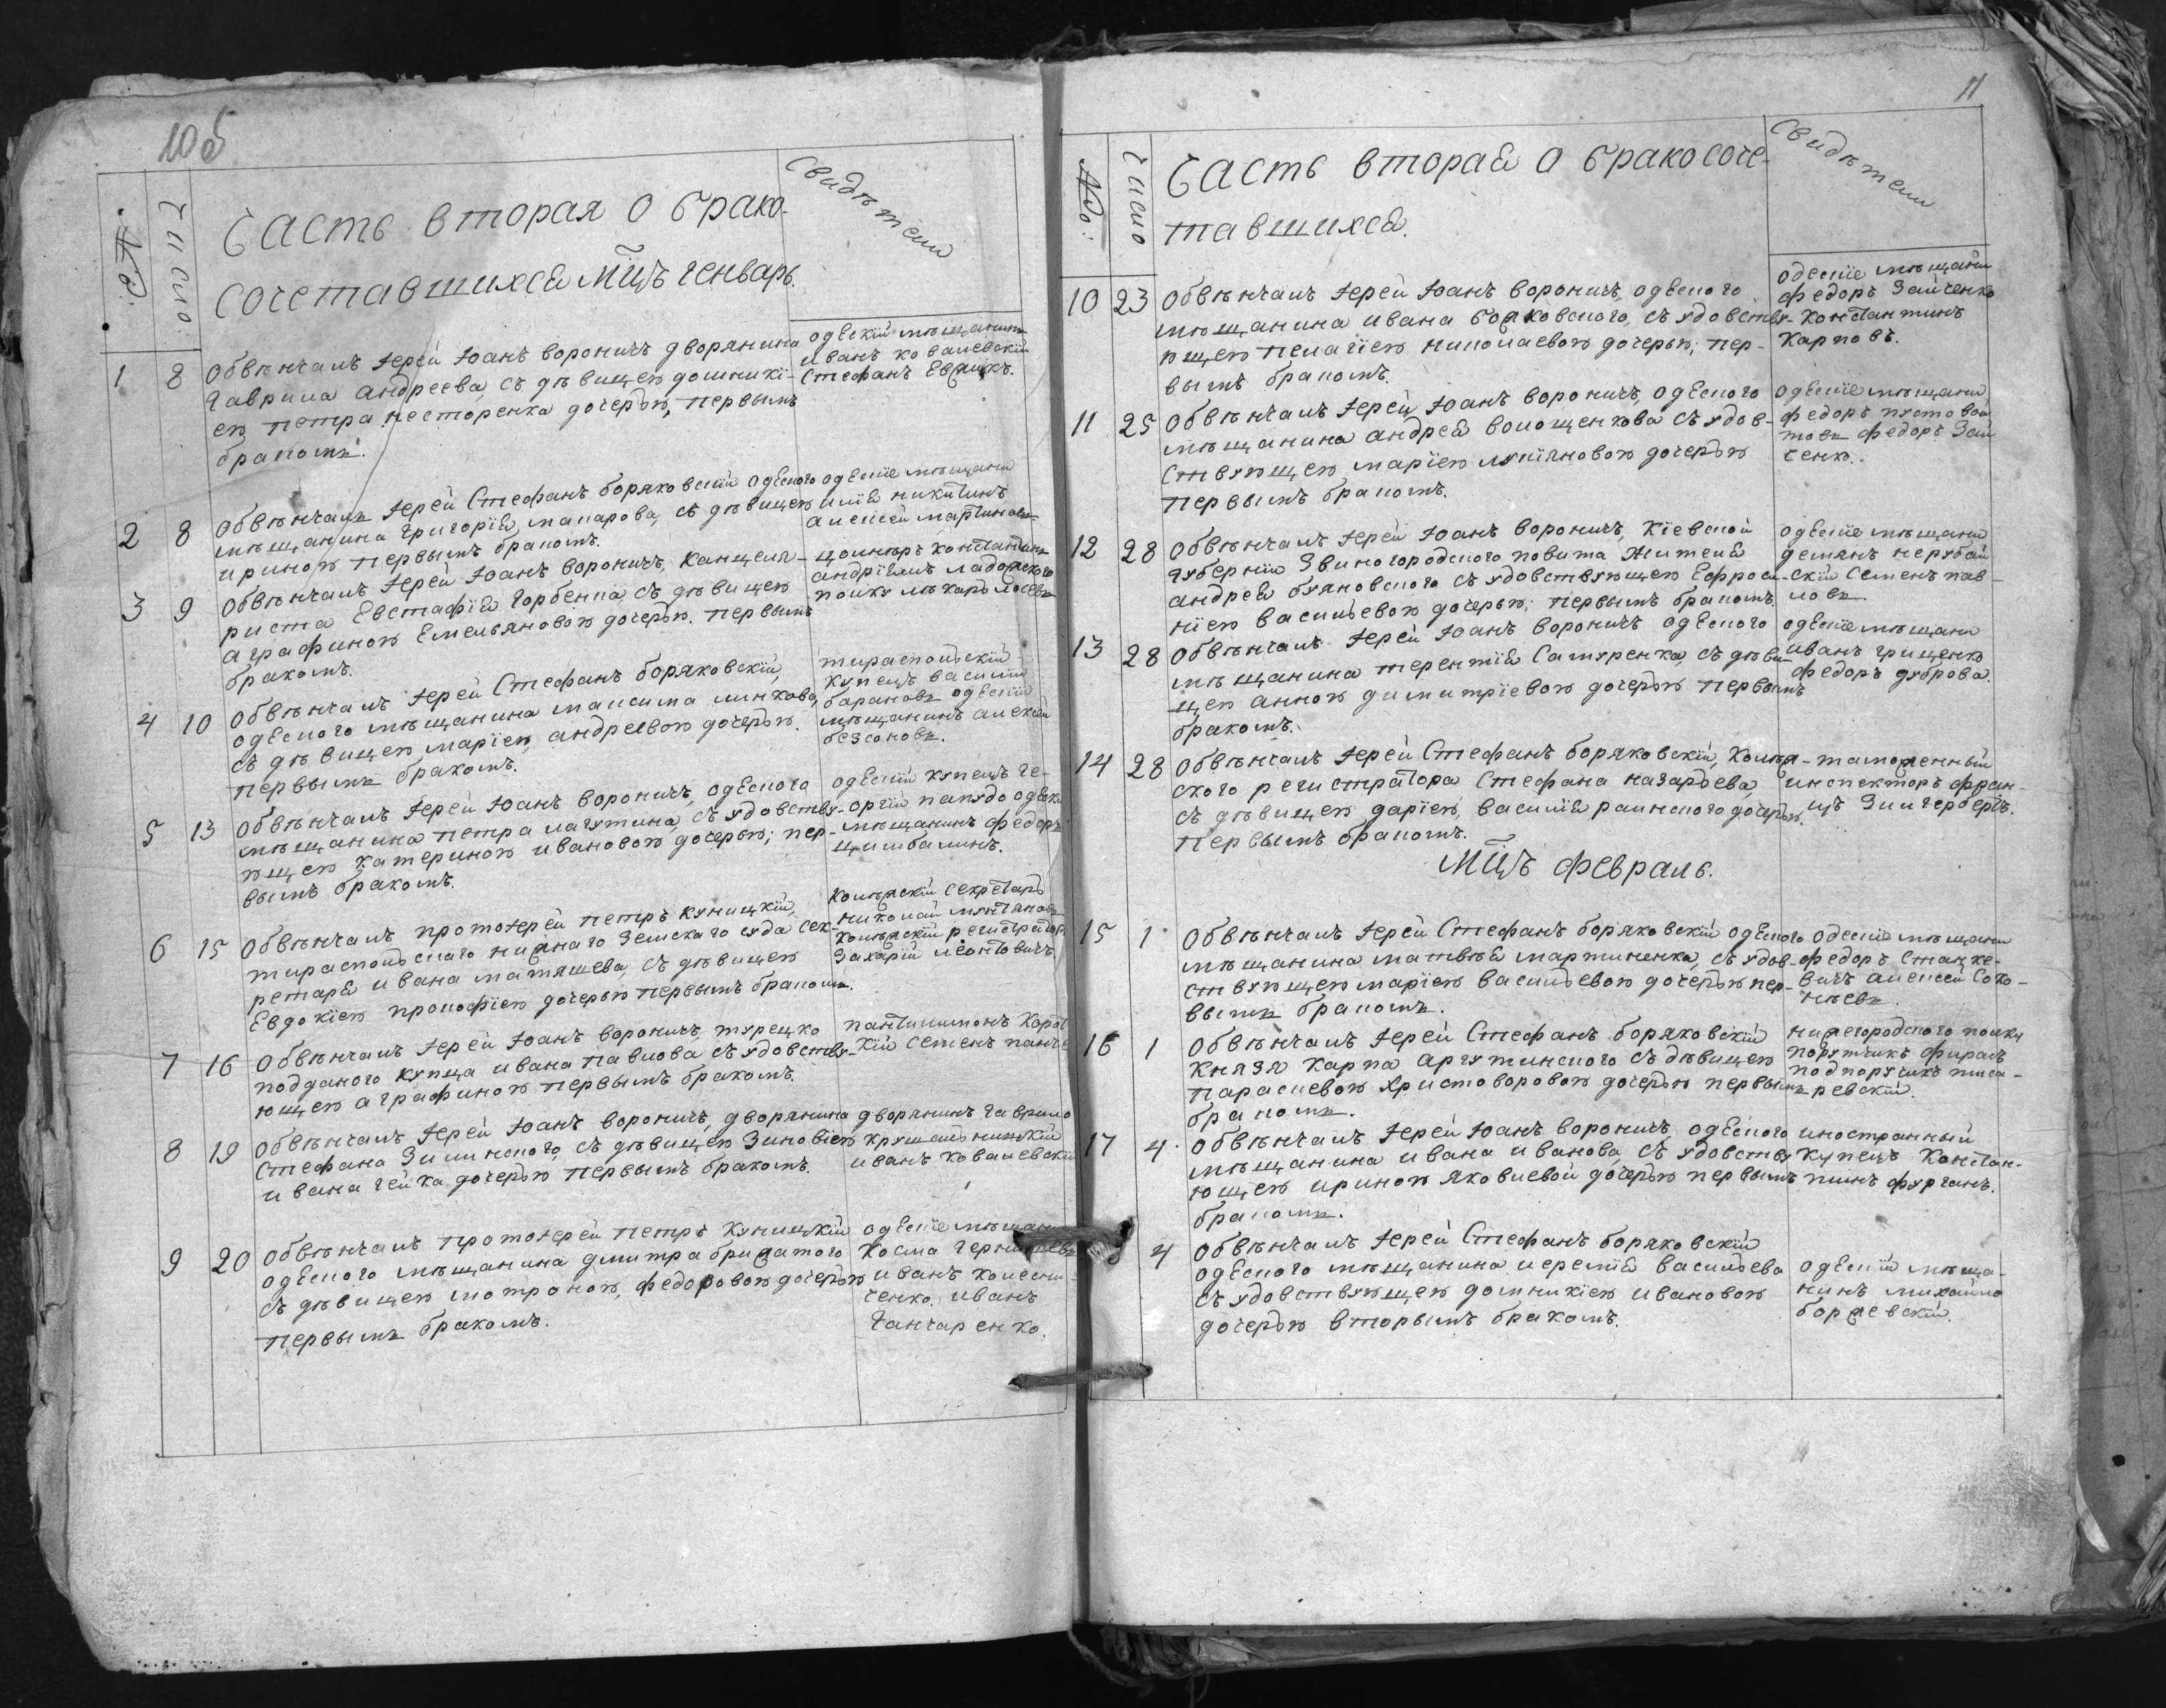 10 об
№
Число
Часть вторая о брако-
сочетавшихся Мцъ Генварь.
Свидѣтели
1 8 Обвѣнчалъ Іерей Іоанъ Вороничъ дворянина
Гаврила Андреева, съ дѣвицею домники-
ею Петра Несторенка дочерью, первымъ
бракомъ.
Одескіи мѣщанинъ
Иванъ Ковалевскій
Стефанъ
2 8 Обвѣнчалъ Іерей Стефанъ Боряковскій Одеского
мѣщанина Григорія Макарова, съ дѣвицею
Ириною первымъ бракомъ.
Одескіе мѣщани
Илія Никитинъ
Алексей Мартиновъ
3 9 Обвѣнчалъ Іерей Іоанъ Вороничъ, Канцеля-
риста Евстафія Горбенка, съ дѣвицею
Аграфиною Емельяновою дочерью. первымъ
бракомъ.
Константинъ
полку лѣкарь
4 10 Обвѣнчалъ Іерей Стефанъ Боряковскій,
Одеского мѣщанина Максима Линкова,
съ дѣвицею Маріею Андреевою дочерью.
первымъ бракомъ.
Тираспольскій
купецъ Василій
Барановъ Одескій
мѣщанинъ Алексей
Безсоновъ.
5 13 Обвѣнчалъ Іерей Іоанъ Вороничъ, Одеского
мѣщанина Петра Лагутина, съ удовству-
ющею Катериною Ивановою дочерью; пер-
вымъ бракомъ.
Одескій купецъ Ге-
оргій Папудо Одескій
мѣщанинъ Федоръ
Цимбалинъ.
6 15 Обвѣнчалъ Протоіерей Петръ Куницкій,
Тираспольского нижнаго земскаго суда сек-
ретаря Ивана Матяшева, съ дѣвицею
Евдокіею Прокофіею дочерью первымъ бракомъ.
Колѣжскій секретарь
Николай
Колѣжскій регистраторъ
Захарій Леонтовичъ.
7 16 Обвѣнчалъ Іерей Іоанъ Вороничъ, турецко
подданого купца Ивана Павлова съ удовству-
ющею Аграфиною первымъ бракомъ.
Пантилимонъ
кій Семенъ
8 19 Обвѣнчалъ Іерей Іоанъ Вороничъ, дворянина
Стефана Зилинского, съ дѣвицею Зиновіею
Ивана Гейка дочерью первымъ бракомъ.
дворянинъ Гаврило
Крушельницкій
Иванъ Ковалевскій
9 20 Обвѣнчалъ Протоіерей Петръ Куницкій
Одеского мѣщанина Дмитра Брижатого
съ дѣвицею Матроною, Федоровою дочерью
первымъ бракомъ.
Одескіе мѣщани
Косма
Иванъ Колесни-
ченко. Иванъ
Ганчаренко.
11
№:
Число
Часть вторая о бракосоче-
тавшихся.
Свидѣтели
10 23 Обвѣнчалъ Іерей Іоанъ Вороничъ, Одеского
мѣщанина Ивана Божковского, съ удовству-
ющею Пелагіею Николаевою дочерью; пер-
вымъ бракомъ.
Одескіе мѣщани
Федоръ Зайченко
Константинъ
Карповъ.
11 25 Обвѣнчалъ Іерей Іоанъ Вороничъ, Одеского
мѣщанина Андрея Волощенкова съ удов-
ствующею Маріею Лукіяновою дочерью
первымъ бракомъ.
Одескіе мѣщани
Федоръ Пустовой
товъ Федоръ Зай
ченко.
12 28 Обвѣнчалъ Іерей Іоанъ Вороничъ, Кіевской
губерніи Звиногородского повита жителя
Андрея Буяновского съ удовствующею Ефроси-
ніею Васильевою дочерью; первымъ бракомъ.
Одескіе мѣщани
Демянъ Нерубай
скій Семенъ Пав-
ловъ.
13 28 Обвѣнчалъ Іерей Іоанъ Вороничъ Одеского
мѣщанина Терентія Сатуренка, съ дѣви-
цею Анною Димитріевою дочерью первымъ
бракомъ.
Одескіе мѣщани
Иванъ Гриценко
Федоръ Дуброва.
14 28 Обвѣнчалъ Іерей Стефанъ Боряковскій, Колѣж-
ского регистратора Стефана Назарьева,
съ дѣвицею Даріею, Василія Раинского дочерью.
первымъ бракомъ.
таможенный
инспекторъ Фран-
цъ Зингербергъ.
Мцъ Февраль.
15 1 Обвѣнчалъ Іерей Стефанъ Боряковскій Одеского
мѣщанина Матвѣя Мартиненка, съ удов-
ствующею Маріею Васильевою дочерью пер-
вымъ бракомъ.
Одескіе мѣщани
Федоръ Стацке-
вичъ Алексей Соко-
16 1 Обвѣнчалъ Іерей Стефанъ Боряковскій
Князя Карпа Аргутинского съ дѣвицею
Параскевою Христофоровою дочерью первымъ
бракомъ.
Нижегородского полку
порутчикъ Фираль
подпоручикъ Писа-
ревскій.
17 4 Обвѣнчалъ Іерей Іоанъ Вороничъ, Одеского
мѣщанина Ивана Иванова, съ удовству
ющею Ириною Яковлевой дочерью первымъ
бракомъ.
иностранный
купецъ Констан-
тинъ Фурганъ.
4 Обвѣнчалъ Іерей Стефанъ Боряковскій
Одеского мѣщанина Иеремія Васильева
съ удовствующею Домникіею Ивановою
дочерью вторымъ бракомъ.
Одескій мѣща-
нинъ Михайло
Боржевскій.